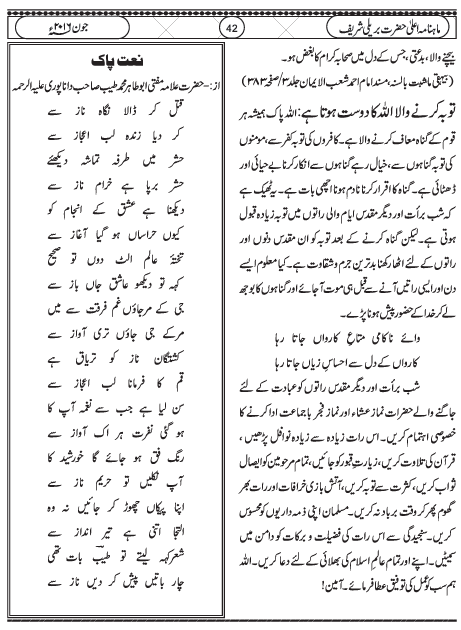 ماہنامہ اعلیٰ حضرت بریلی شریف
42
جون ۲۰۱۶ء
بیچنے والا، بدعتی، جس کے دل میں صحابہ کرام کا بغض ہو۔
(بیہقی ماثبت بالسنہ، مسند امام احمد شعب الایمان جلد ۳/صفحہ ۳۸۳)
توبہ کرنے والا اللہ کا دوست ہوتا ہے: اللہ پاک ہمیشہ ہر
قوم کے گناہ معاف کرنے والا ہے۔ کافروں کی توبہ کفر سے، مومنوں
کی توبہ گناہوں سے، خیال رہے گناہوں سے انکار کرنا بے حیائی اور
ڈھٹائی ہے۔ گناہ کا اقرار کرنا نادم ہونا اچھی بات ہے۔ یہ ٹھیک ہے
کہ شب برأت اور دیگر مقدس ایام والی راتوں میں توبہ زیادہ قبول
ہوتی ہے۔ لیکن گناہ کرنے کے بعد توبہ کو ان مقدس دنوں اور
راتوں کے لئے اٹھا رکھنا بدترین جرم و شقاوت ہے۔ کیا معلوم ایسے
دن اور ایسی راتیں آنے سے قبل ہی موت آجائے اور گناہوں کا بوجھ
لے کر خدا کے حضور پیش ہونا پڑے۔
وائے ناکامی متاع کارواں جاتا رہا
کارواں کے دل سے احساس زیاں جاتا رہا
شب برأت اور دیگر مقدس راتوں کو عبادت کے لئے
جاگنے والے حضرات نماز عشاء اور نماز فجر باجماعت ادا کرنے کا
خصوصی اہتمام کریں۔ اس رات زیادہ سے زیادہ نوافل پڑھیں،
قرآن کی تلاوت کریں، زیارت قبور کو جائیں، تمام مرحومین کو ایصال
ثواب کریں، کثرت سے توبہ کریں، آتش بازی خرافات اور رات بھر
گھوم پھر کر وقت برباد نہ کریں۔ مسلمان اپنی ذمہ داریوں کو محسوس
کریں۔ سنجیدگی سے اس رات کی فضیلت و برکات کو دامن میں
سمیٹیں۔ اپنے اور تمام عالم اسلام کی بھلائی کے لئے دعا کریں۔ اللہ
ہم سب کو عمل کی توفیق عطا فرمائے۔ آمین!
نعت پاک
از:- حضرت علامہ مفتی ابو طاہر محمد طیب صاحب دانا پوری علیہ الرحمہ
قتل کر ڈالا نگاہ ناز سے
کر دیا زندہ لب اعجاز سے
حشر میں طرفہ تماشہ دیکھئے
حشر برپا ہے خرام ناز سے
دیکھنا ہے عشق کے انجام کو
کیوں حراساں ہو گیا آغاز سے
تختۂ عالم الٹ دوں تو صحیح
کہہ تو دیکھو عاشق جاں باز سے
جی کے مرجاؤں غم فرقت سے میں
مرکے جی جاؤں تری آواز سے
کشتگان ناز کو تریاق ہے
قم کا فرمانا لب اعجاز سے
سن لیا ہے جب سے نغمہ آپ کا
ہو گئی نفرت ہر اک آواز سے
رنگ فق ہو جائے گا خورشید کا
آپ نکلیں تو حریم ناز سے
اپنا پیکاں چھوڑ کر جائیں نہ وہ
التجا اتنی ہے تیر انداز سے
شعر کہہ لیتے تو طیب بات تھی
چار باتیں پیش کر دیں ناز سے